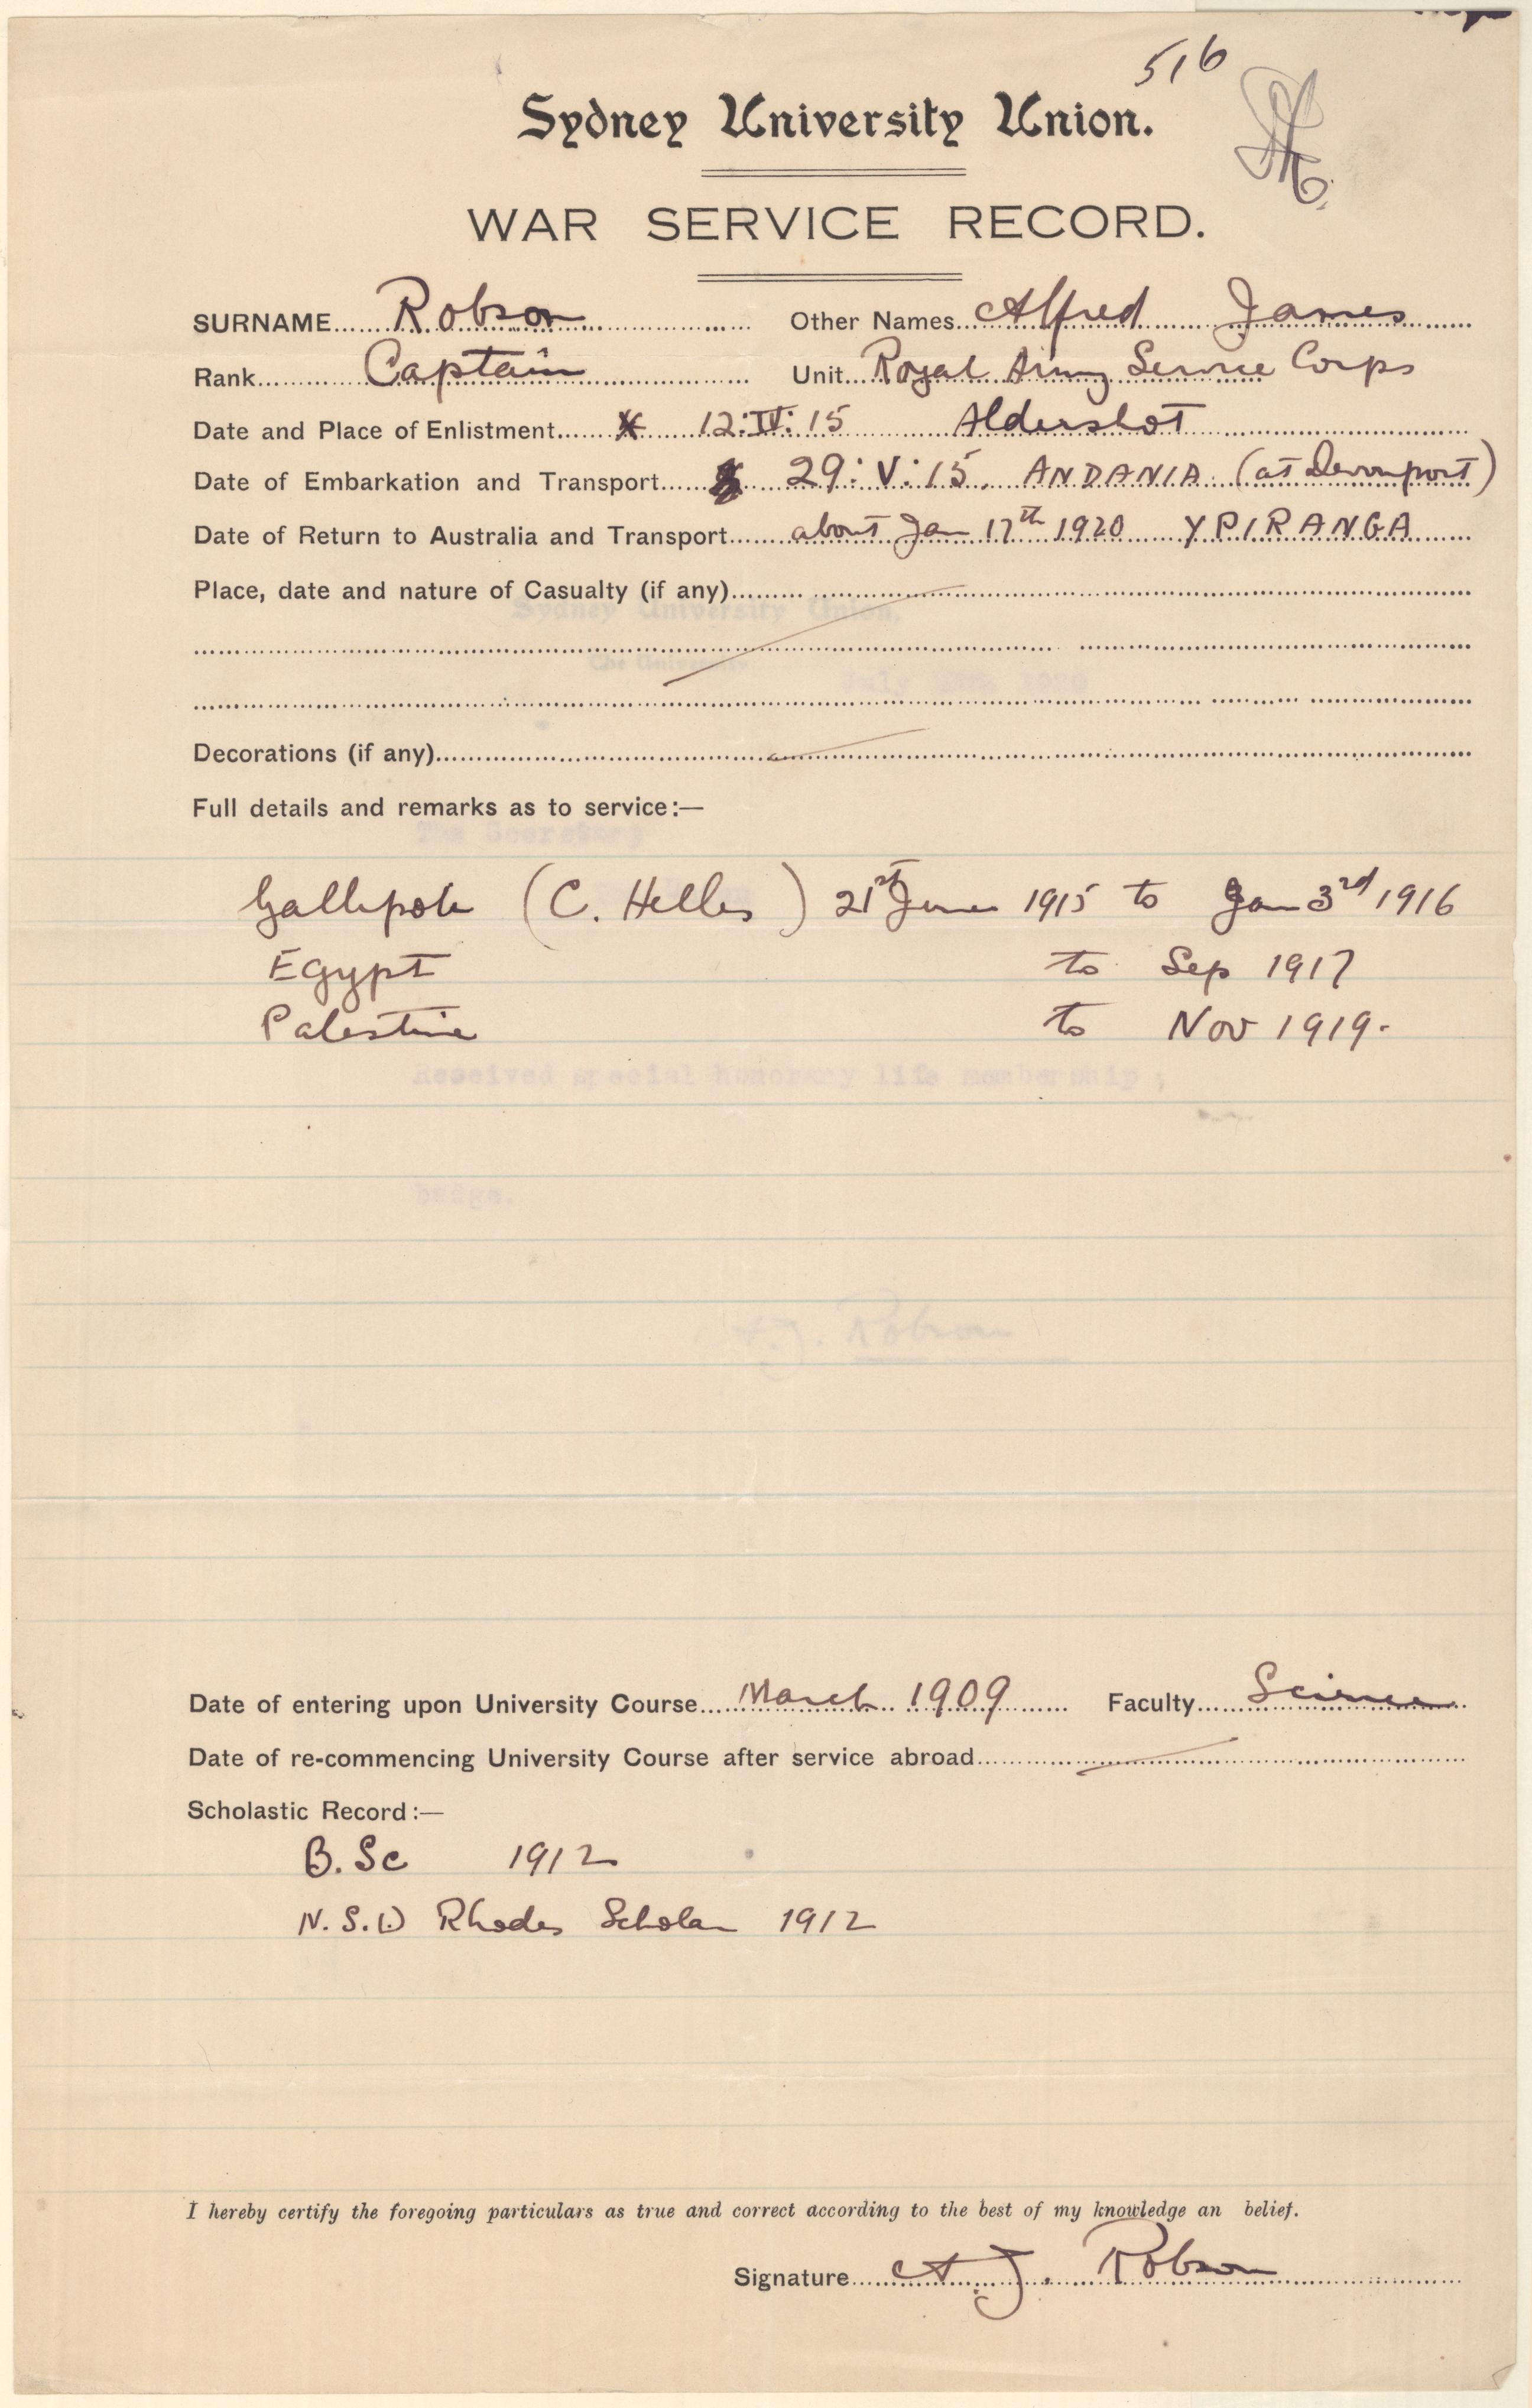 516
Sydney University Union.
WAR SERVICE RECORD.
SURNAME Robson Other Names Alfred James
Rank Captain Unit Royal Army Service Corps
Date and Place of Enlistment 12:IV:15 Aldershot
Date of Embarkation and Transport 29:V:15. ANDANIA (at Devonport)
Date of Return to Australia and Transport about Jan 17th 1920 YPIRANGA
Place, date and nature of Casualty (if any)
Sydney University Union,
The University
July 1920
Decorations (if any)
Full details and remarks as to service:—
The Secretary
Gallipoli (C. Helles) 21st June 1915 to Jan 3rd 1916
Egypt to Sep 1917
Palestine to Nov 1919.
Received special Honorary life membership
badge.
A.J. Robson
Date of entering upon University Course March 1909 Faculty Science
Date of re-commencing University Course after service abroad
Scholastic Record:—
B.Sc 1912
N.S.W Rhodes Scholar 1912
I hereby certify the foregoing particulars as true and correct according to the best of my knowledge an belief.
Signature A.J. Robson